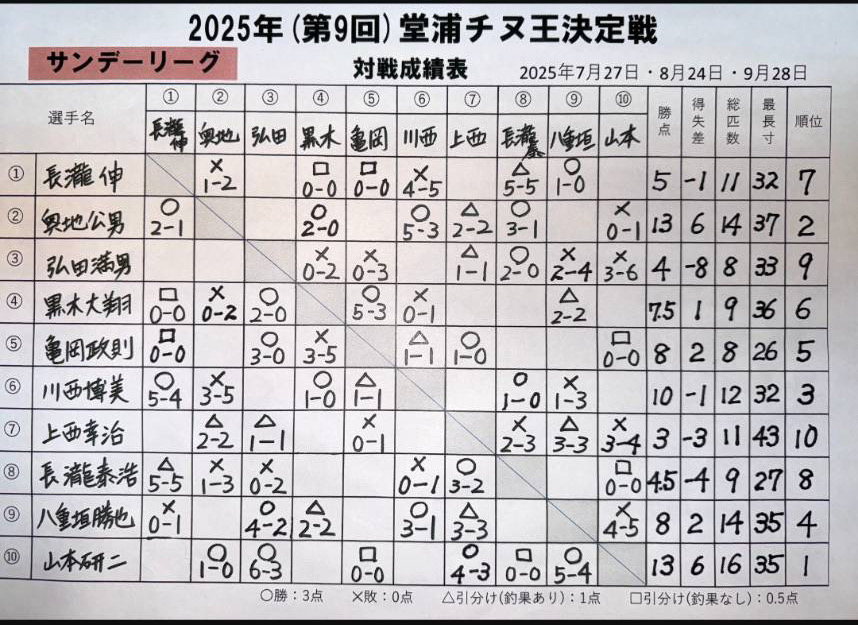 2025年(第9回)堂浦チヌ王決定戦
サンデーリーグ
対戦成績表
2025年7月27日・8月24日・9月28日
選手名 ① ② ③ ④ ⑤ ⑥ ⑦ ⑧ ⑨ ⑩ 勝点 得失差 総匹数 最長寸 順位
長瀧伸 奥地 弘田 黒木 亀岡 川西 上西 長瀧泰 八重垣 山本
① 長瀧 伸 × 1-2 □ 0-0 □ 0-0 × 4-5 △ 5-5 ○ 1-0 5 -1 11 32 7
② 奥地公男 ○ 2-1 ○ 2-0 ○ 5-3 △ 2-2 ○ 3-1 × 0-1 13 6 14 37 2
③ 弘田満男 × 0-2 × 0-3 △ 1-1 ○ 2-0 × 2-4 × 3-6 4 -8 8 33 9
④ 黒木大翔 □ 0-0 × 0-2 ○ 2-0 ○ 5-3 × 0-1 △ 2-2 7.5 1 9 36 6
⑤ 亀岡政則 □ 0-0 ○ 3-0 × 3-5 △ 1-1 ○ 1-0 □ 0-0 8 2 8 26 5
⑥ 川西博美 ○ 5-4 × 3-5 ○ 1-0 △ 1-1 ○ 1-0 × 1-3 10 -1 12 32 3
⑦ 上西幸治 △ 2-2 △ 1-1 × 0-1 × 2-3 △ 3-3 × 3-4 3 -3 11 43 10
⑧ 長瀧泰浩 △ 5-5 × 1-3 × 0-2 × 0-1 ○ 3-2 □ 0-0 4.5 -4 9 27 8
⑨ 八重垣勝也 × 0-1 ○ 4-2 △ 2-2 ○ 3-1 △ 3-3 × 4-5 8 2 14 35 4
⑩ 山本研二 ○ 1-0 ○ 6-3 □ 0-0 ○ 4-3 □ 0-0 ○ 5-4 13 6 16 35 1
○勝:3点 ×敗:0点 △引分け(釣果あり):1点 □引分け(釣果なし):0.5点